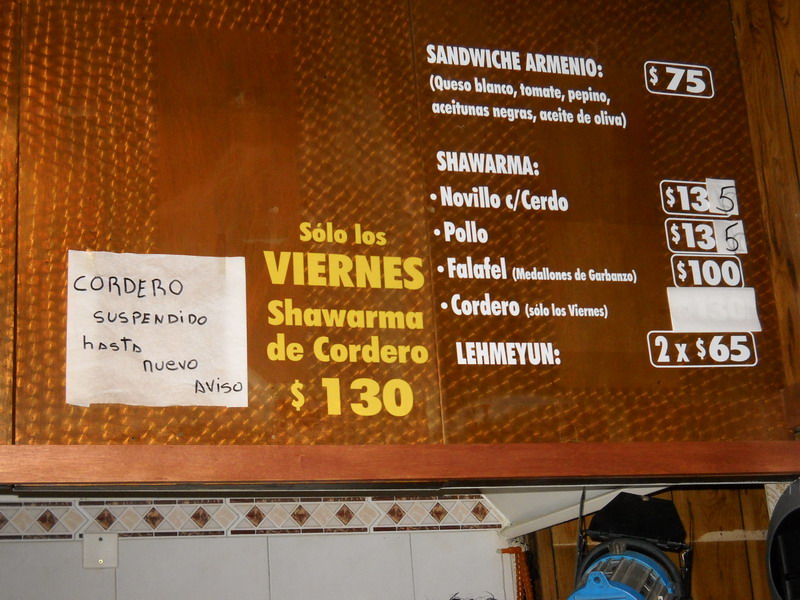 CORDERO
SUSPENDIDO
hasta
nuevo
Aviso
Sólo los
VIERNES
Shawarma
de Cordero
$ 130
SANDWICHE ARMENIO: $ 75
(Queso blanco, tomate, pepino,
aceitunas negras, aceite de oliva)
SHAWARMA:
• Novillo c/Cerdo $135
• Pollo $135
• Falafel (Medallones de Garbanzo) $100
• Cordero (sólo los Viernes)
LEHMEYUN: 2 x $65